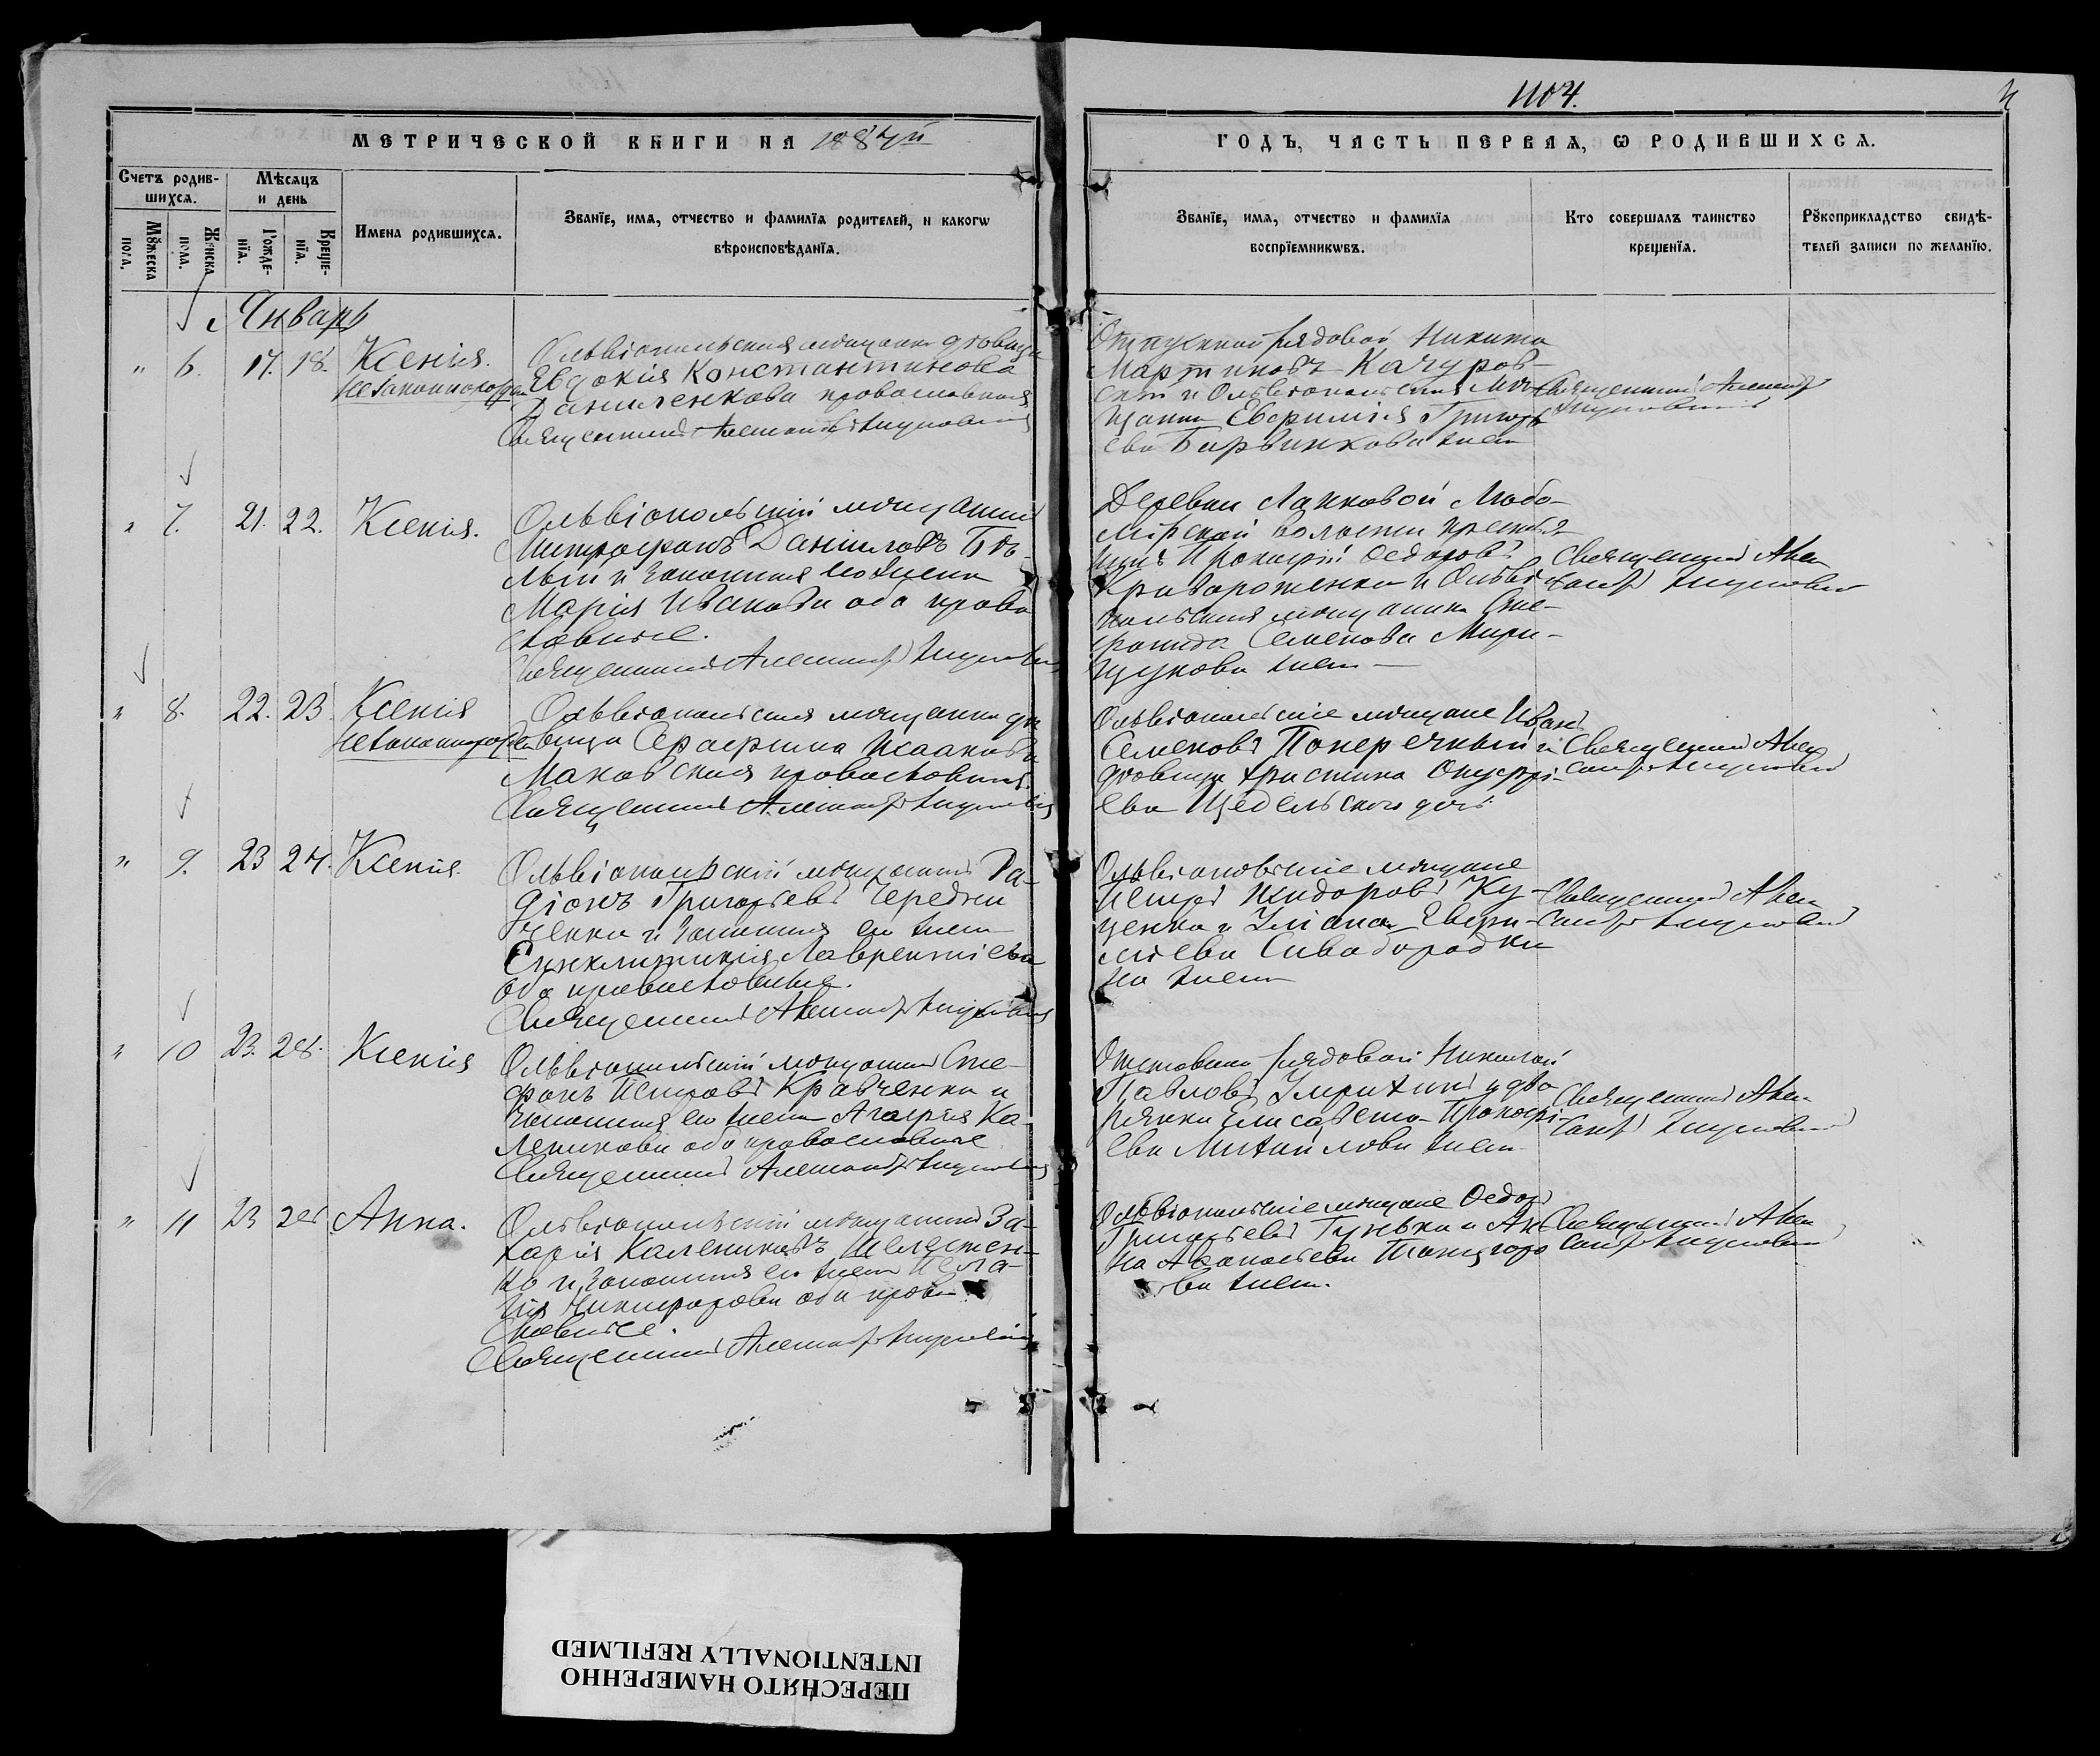 1104.
МЕТРИЧЕСКОЙ КНИГИ НА 1887й
ГОДЪ, ЧАСТЬ ПЕРВАЯ, Ѡ РОДИВШИХСЯ.
Счетъ родив-
шихся.
Мѣсяцъ
и день
Мꙋжеска
пола.
Женска
пола.
Рожде-
нїя.
Креще-
нїя.
Имена родившихся.
Званїе, имя, отчество и фамилїя родителей, и какогѡ
вѣроисповѣданїя.
Званїе, имя, отчество и фамилїя
воспрїемникѡвъ.
Кто совершалъ таинство
крещенїя.
Рꙋкоприкладство свидѣ-
телей записи по желанїю.
Январь
" 6. 17. 18. Ксенія.
незаконнорожден
Ольвіопольская мѣщанка дѣвица
Евдокія Константинова
Даниленкова православная
Священникъ Александръ
Отпускной рядовой Никита
Мартиновъ Качуров-
скій и Ольвіопольская мѣ-
щанка Евфимія Григорь
ева
Священникъ Александръ
" 7. 21. 22. Ксенія.
Ольвіопольскій мѣщанинъ
Митрофанъ Даниловъ Бѣ-
лый и законная его жена
Марія Иванова оба право
славные.
Священникъ Александръ
Деревни Лапковой Любо-
мірской волости крестья
нинъ Прокофій Ѳедоровъ
и Ольвіо
польская мѣщанка Сте-
фанида Семенова
жена
Священникъ Алек
сандръ
" 8. 22. 23. Ксенія
незаконнорожден
Ольвіопольская мѣщанка дѣ
вица Серафима Исаакова
Маковская православная.
Священникъ Александръ
Ольвіопольскіе мѣщане Иванъ
Семеновъ Поперечный и
дѣвица Христина Онуфрі-
ева дочь
Священникъ Алек
сандръ
" 9. 23 24. Ксенія.
Ольвіопольскій мѣщанинъ Ра-
діонъ Григорьевъ Чередни
ченко и законная его жена
Синклитикія Лаврентіева
оба православные.
Священникъ Александръ
Ольвіопольскіе мѣщане
Петръ Исидоровъ Ку-
ценко и Уліана Евфи-
міева Сивабородки
на жена
Священникъ Алек
сандръ
" 10 23. 28. Ксенія
Ольвіопольскій мѣщанинъ Сте-
фанъ Петровъ Кравченко и
законная его жена Агафія Ка-
леникова оба православные
Священникъ Александръ
Отставной рядовой Николай
Павловъ и дво
рянка Елисавета Прокофі-
ева Михайлова жена
Священникъ Алек-
сандръ
" 11 23 28 Анна.
Ольвіопольскій мѣщанинъ За-
харія Калениковъ Шелестен-
ко и законная его жена Пела-
гія Никифорова оба право
славные.
Священникъ Александръ
Ольвіопольскіе мѣщане Ѳедоръ
Григорьевъ Гунько и Ан-
на Аѳанасьева
ва жена.
Священникъ Алек
сандръ
ПЕРЕСНЯТО НАМЕРЕННО
INTENTIONALLY REFILMED